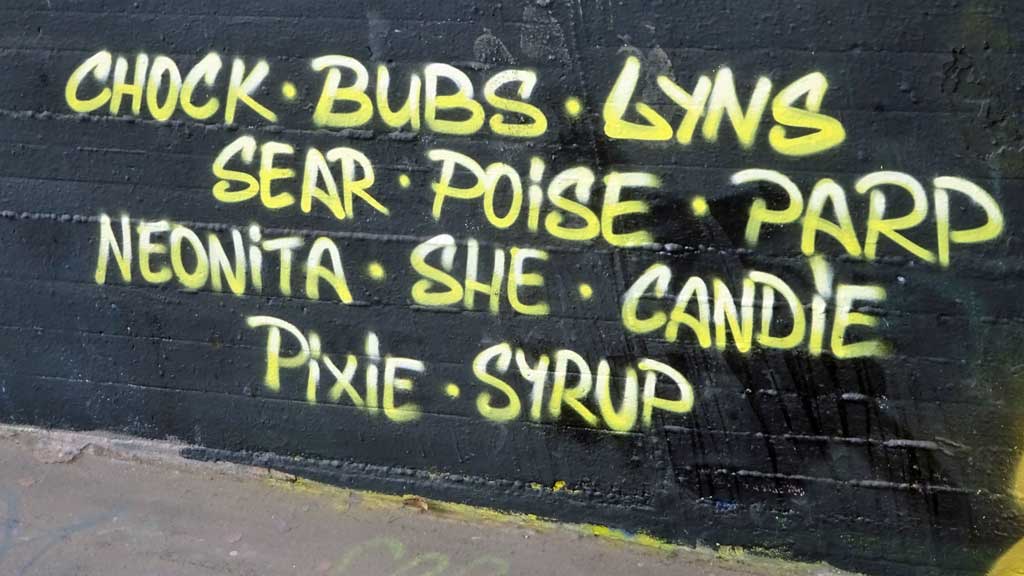 CHOCK · BUBS · LYNS
SEAR · POiSE · PARP
NEONiTA · SHE · CANDiE
PiXiE · SYRUP